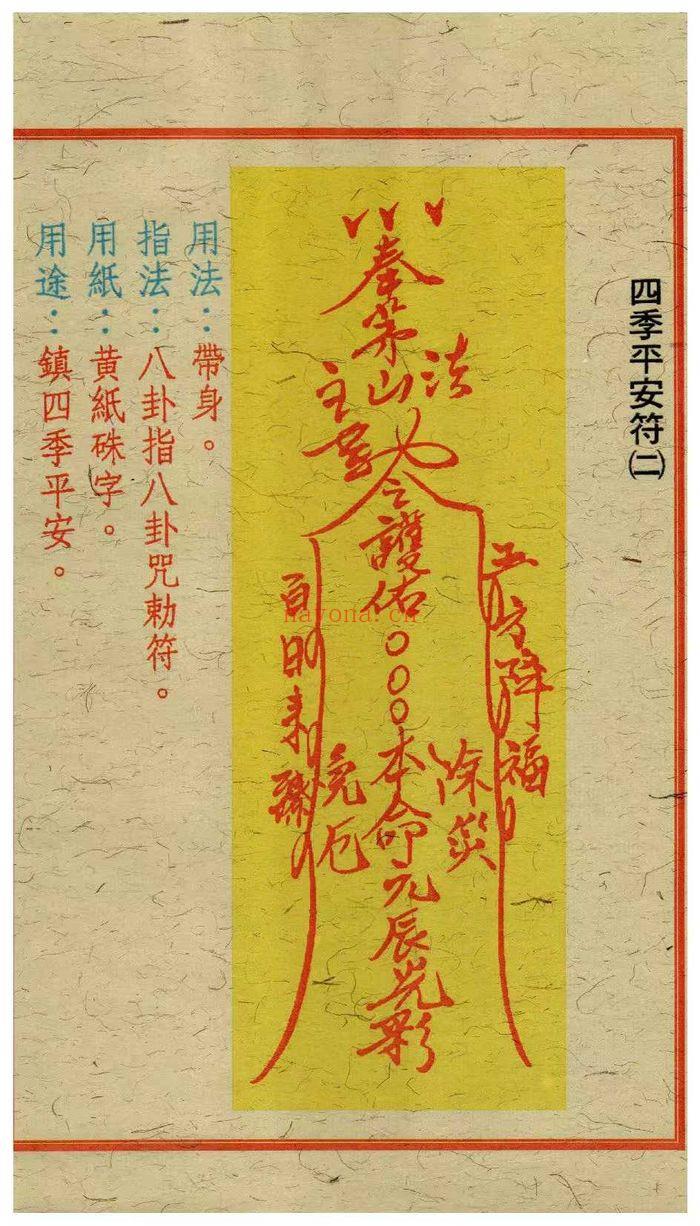 四季平安符(二)
奉茅山法主
令護佑○○○本命元辰光彩
五方降福
百日來臨
除災
免厄
用法：帶身。
指法：八卦指八卦咒勅符。
用紙：黃紙硃字。
用途：鎮四季平安。
nayona.cn